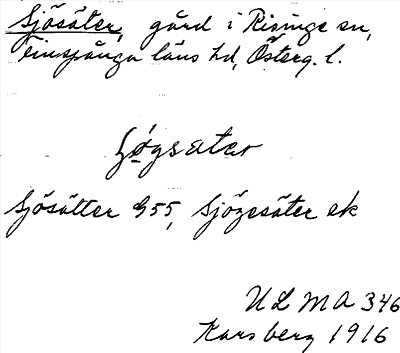 Sjösäter, gård i Risinge sn,
Finspånga läns hd, Österg. l.
Sjösätter G55, Sjözesäter ek
ULMA 346
Karsberg 1916